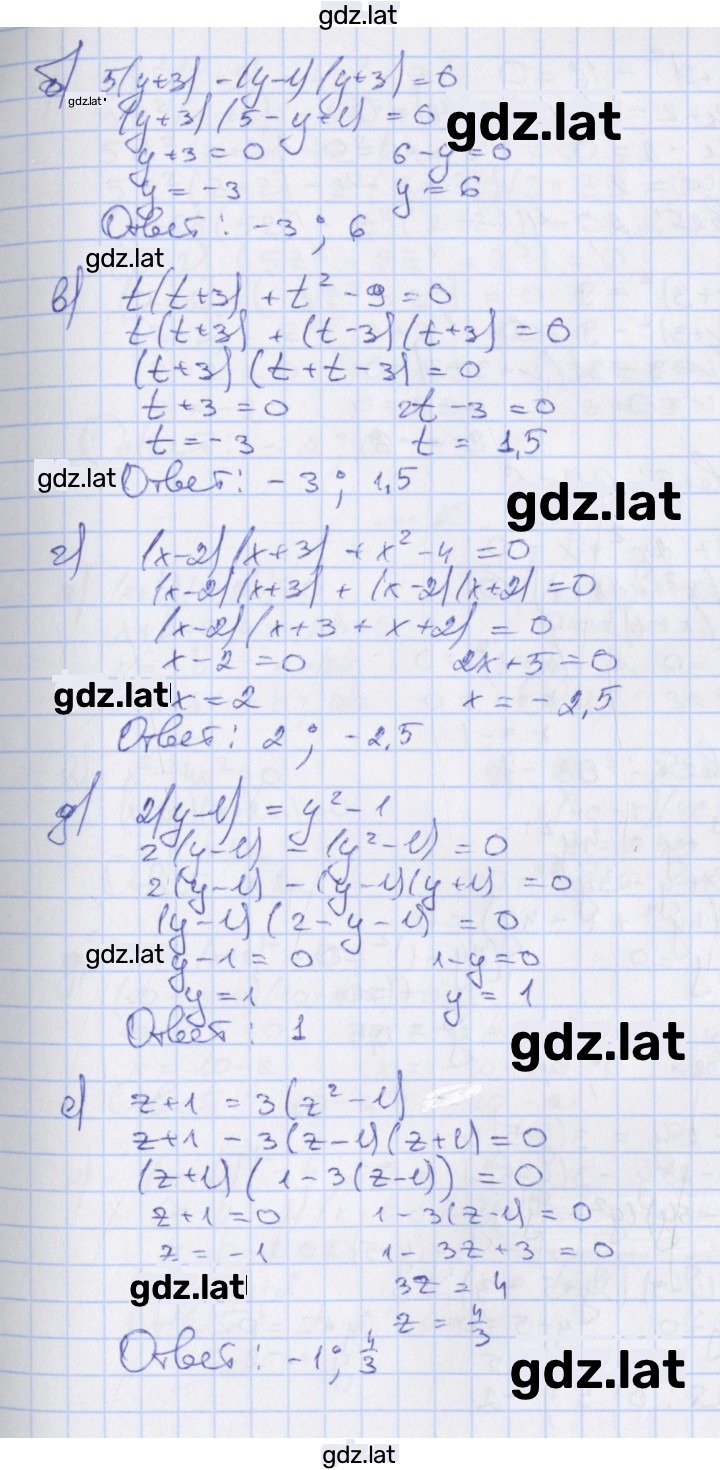 gdz.lat
б) 5(y+3) - (y-1)(y+3) = 0
gdz.lat
(y+3)(5-y+1) = 0
gdz.lat
y+3=0 6-y=0
y=-3 y=6
Ответ: -3; 6
gdz.lat
в) t(t+3) + t² - 9 = 0
t(t+3) + (t-3)(t+3) = 0
(t+3)(t+t-3) = 0
t+3=0 2t-3=0
t=-3 t=1,5
gdz.lat
Ответ: -3; 1,5
gdz.lat
г) (x-2)(x+3) + x² - 4 = 0
(x-2)(x+3) + (x-2)(x+2) = 0
(x-2)(x+3+x+2) = 0
x-2=0 2x+5=0
gdz.lat
x=2 x=-2,5
Ответ: 2; -2,5
д) 2(y-1) = y²-1
2(y-1) - (y²-1) = 0
2(y-1) - (y-1)(y+1) = 0
(y-1)(2-y-1) = 0
gdz.lat
y-1=0 1-y=0
y=1 y=1
Ответ: 1
gdz.lat
е) z+1 = 3(z²-1)
z+1 - 3(z-1)(z+1) = 0
(z+1)(1-3(z-1)) = 0
z+1=0 1-3(z-1)=0
z=-1 1-3z+3=0
gdz.lat
3z=4
z=4/3
Ответ: -1; 4/3
gdz.lat
gdz.lat